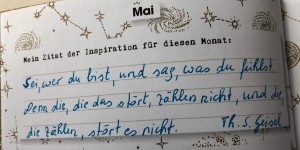 Mai
Mein Zitat der Inspiration für diesen Monat:
Sei, wer du bist, und sag, was du fühlst
Denn die, die das stört, zählen nicht, und die,
die zählen, stört es nicht.
Th. S. Geisel